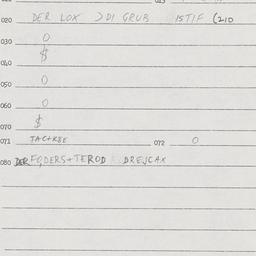 020 DER LOX DI GRUB ISTIF (210
030 0
040 $
050 0
060 0
070 $
071 JAC+KBE 072 0
080 DER FQDERS+TEROD DREJCAX